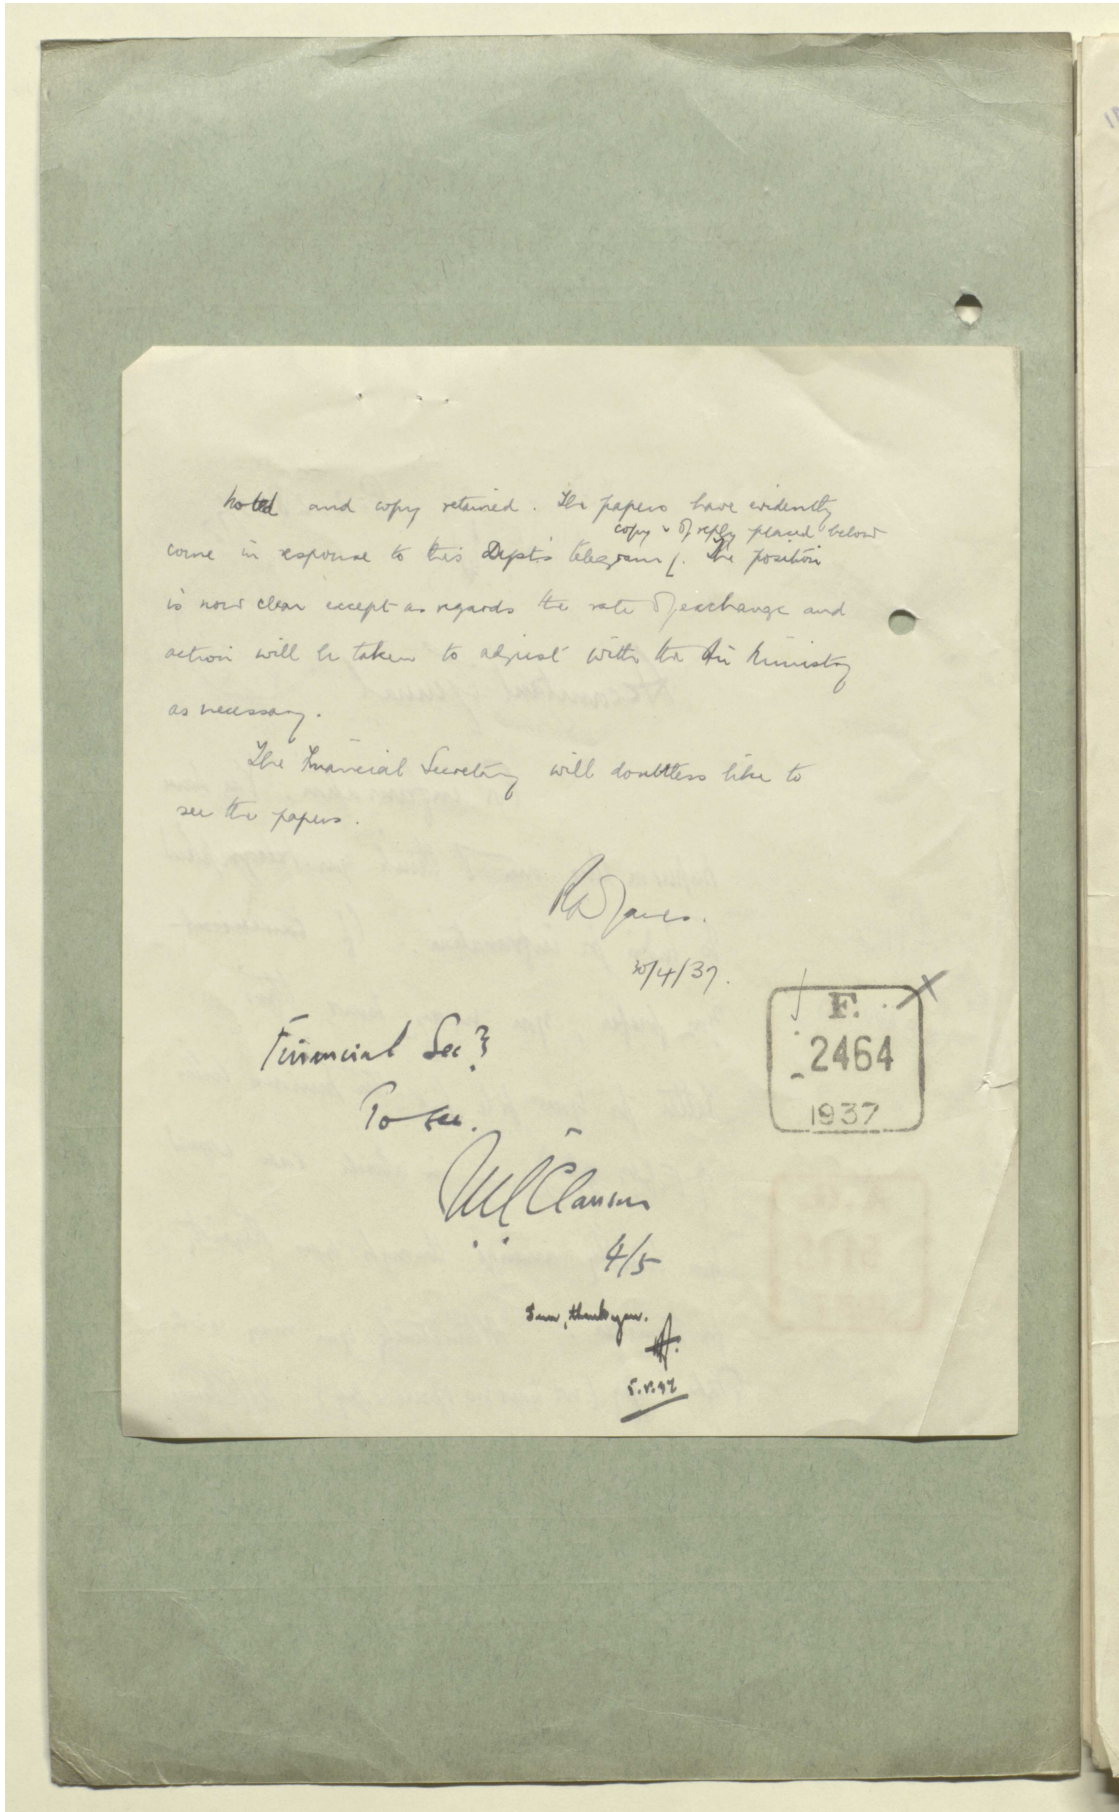 Noted and copy retained. The papers have evidently
copy & of reply placed below
come in response to this Dept's telegram /. The position
is now clear except as regards the rate of exchange and
action will be taken to adjust with the Air Ministry
as necessary.
The Financial Secretary will doubtless like to
see the papers.
30/4/37.
F.
2464
1937
Financial Sec?
To see.
4/5
Seen, thank you.
5.5.37